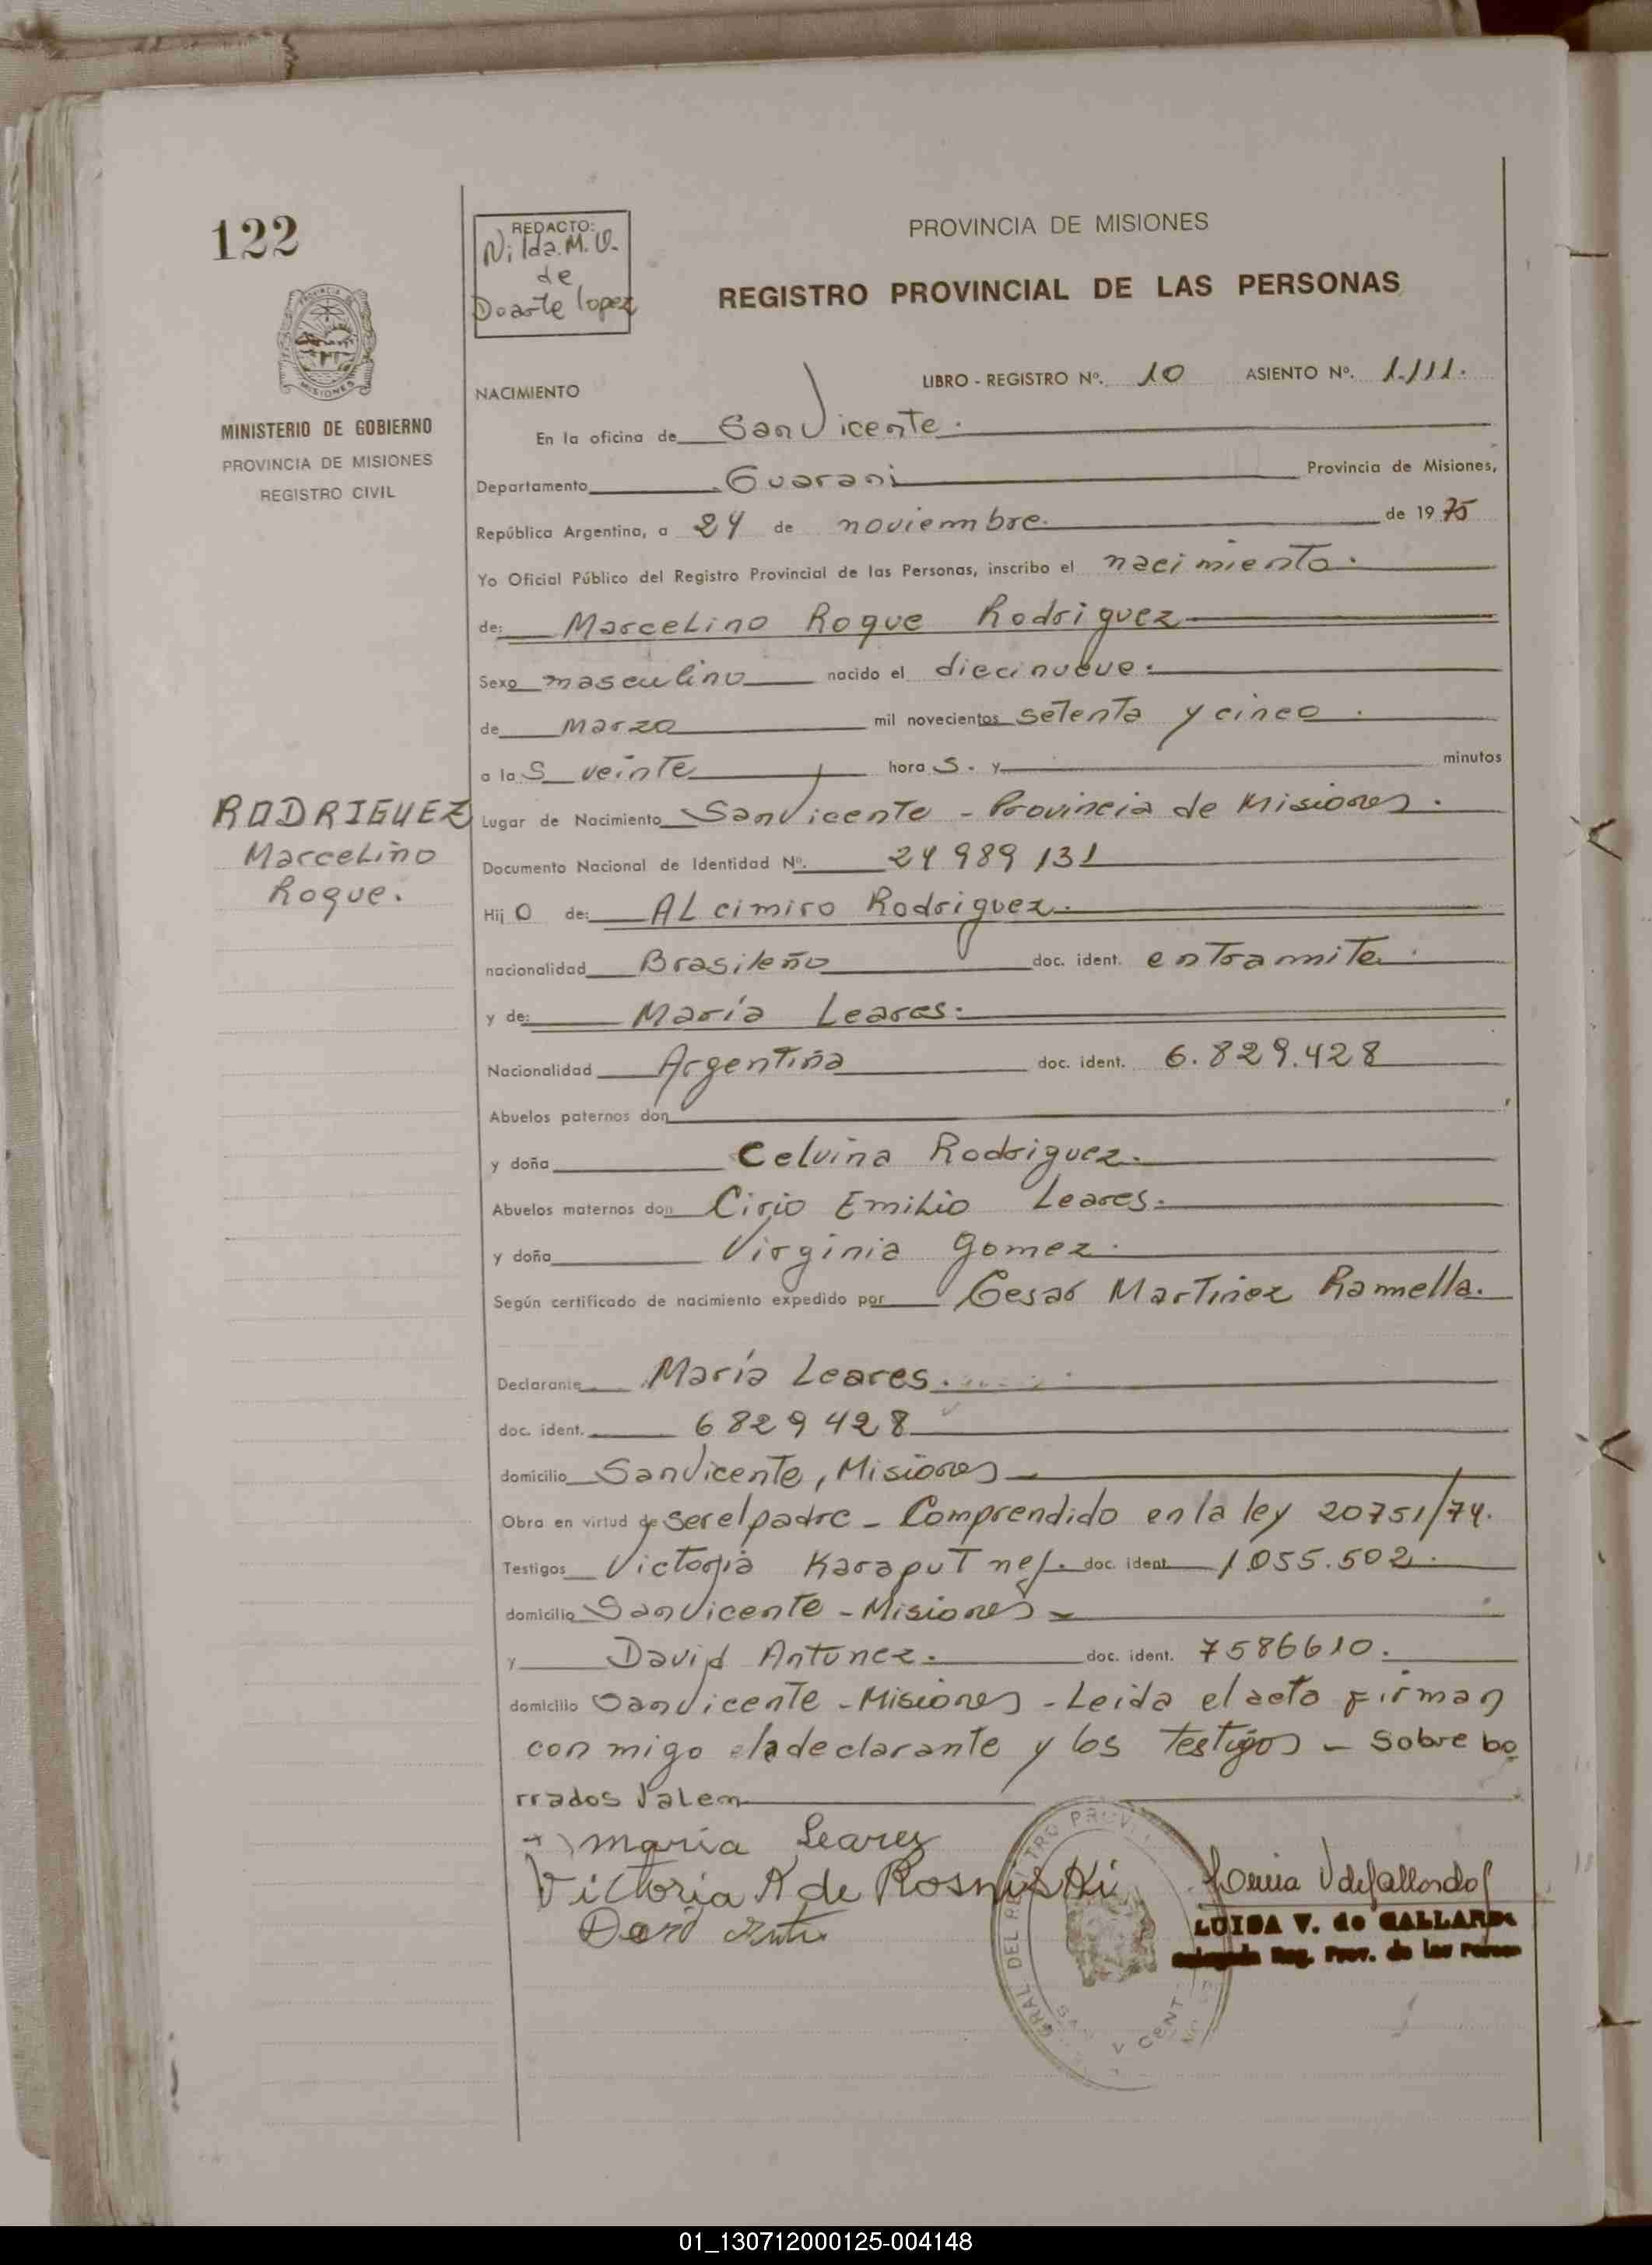 122
REDACTO:
Nilda. M. V.
de
Doarte lopez
PROVINCIA DE MISIONES
REGISTRO PROVINCIAL DE LAS PERSONAS
MINISTERIO DE GOBIERNO
PROVINCIA DE MISIONES
REGISTRO CIVIL
NACIMIENTO LIBRO - REGISTRO Nº. 10 ASIENTO Nº. 1.111.
En la oficina de San Vicente.
Departamento Guarani Provincia de Misiones,
República Argentina, a 24 de noviembre. de 1975
Yo Oficial Público del Registro Provincial de las Personas, inscribo el nacimiento.
de: Marcelino Roque Rodriguez
Sexo masculino nacido el diecinueve.
de Marzo mil novecientos setenta y cinco.
a las veinte horas. y minutos
RODRIGUEZ
Marcelino
Roque.
Lugar de Nacimiento San Vicente - Provincia de Misiones.
Documento Nacional de Identidad Nº. 24 989 131
Hijo de: ALcimiro Rodriguez.
nacionalidad Brasileño doc. ident. en tramite.
y de: María Leares.
Nacionalidad Argentina doc. ident. 6.829.428
Abuelos paternos don
y doña Celvina Rodriguez.
Abuelos maternos don Cirio Emilio Leares.
y doña Virginia Gomez.
Según certificado de nacimiento expedido por Cesar Martinez Ramella.
Declarante María Leares.
doc. ident. 6829428
domicilio San Vicente, Misiones
Obra en virtud de ser el padre - Comprendido en la ley 20751/74.
Testigos Victoria Karaput doc. ident. 1.055.502.
domicilio San Vicente - Misiones
y David Antunez. doc. ident. 7586610.
domicilio San Vicente - Misiones - Leida el acta firman
conmigo la declarante y los testigos - Sobre bo
rrados Valem
maria Learez
Victoria K de Rosniski
LUISA V. de GALLARDO
Reg. Prov. de las Person
GRAL DEL REGISTRO PROV
01_130712000125-004148